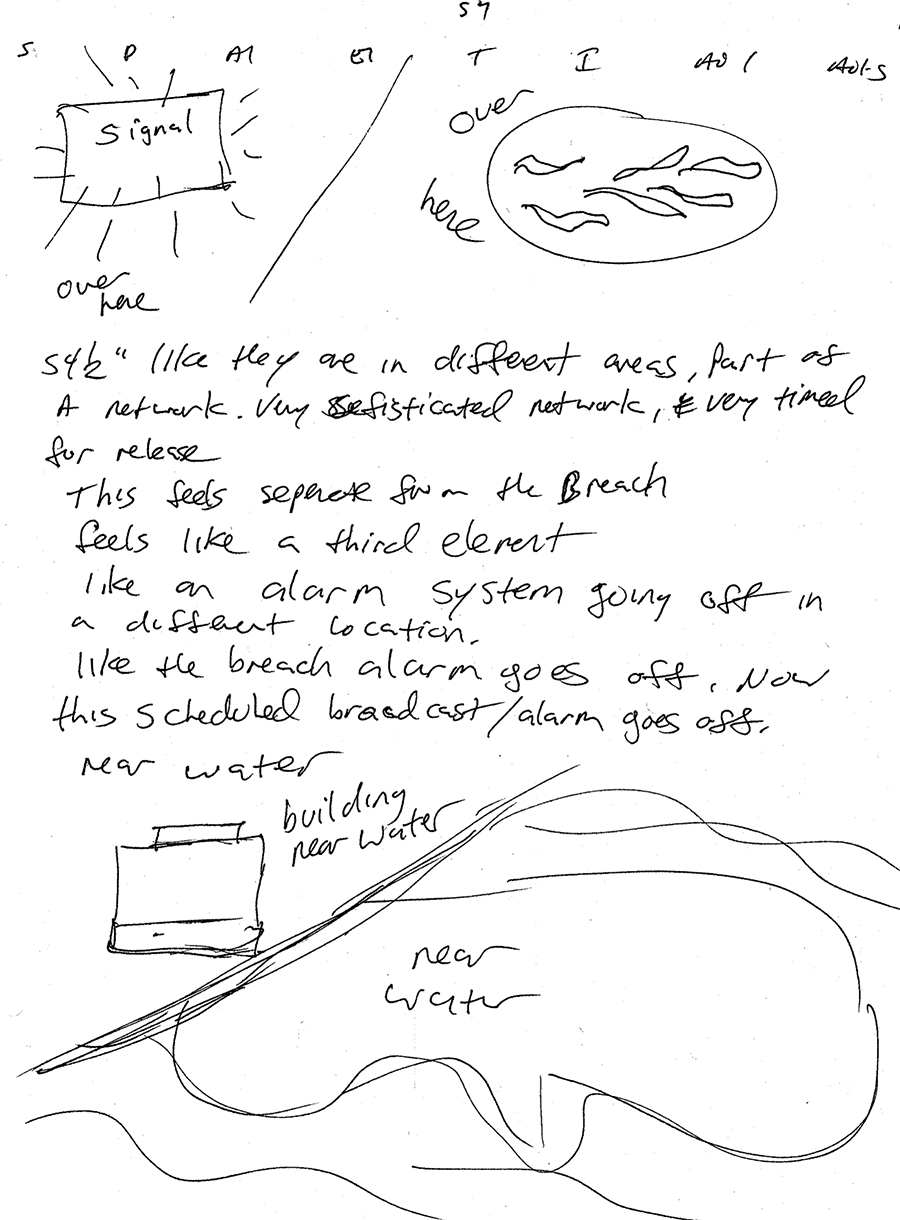 S4
S D AI EI T I AOL AOL-S
Signal
over
here
over
here
S4½" like they are in different areas, Part of
A network. Very Sefisticated network, & very timed
for release
This feels seperate from the Breach
feels like a third element
like an alarm system going off in
a different location.
like the breach alarm goes off. Now
this scheduled broadcast/alarm goes off.
near water
building
near water
near
water